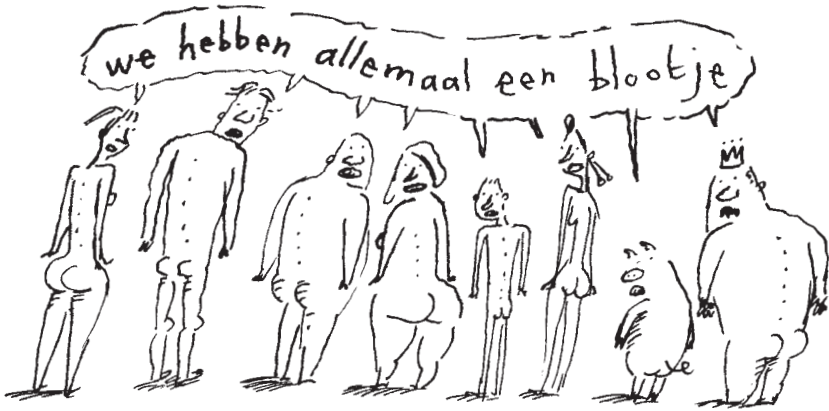 we hebben allemaal een blootje